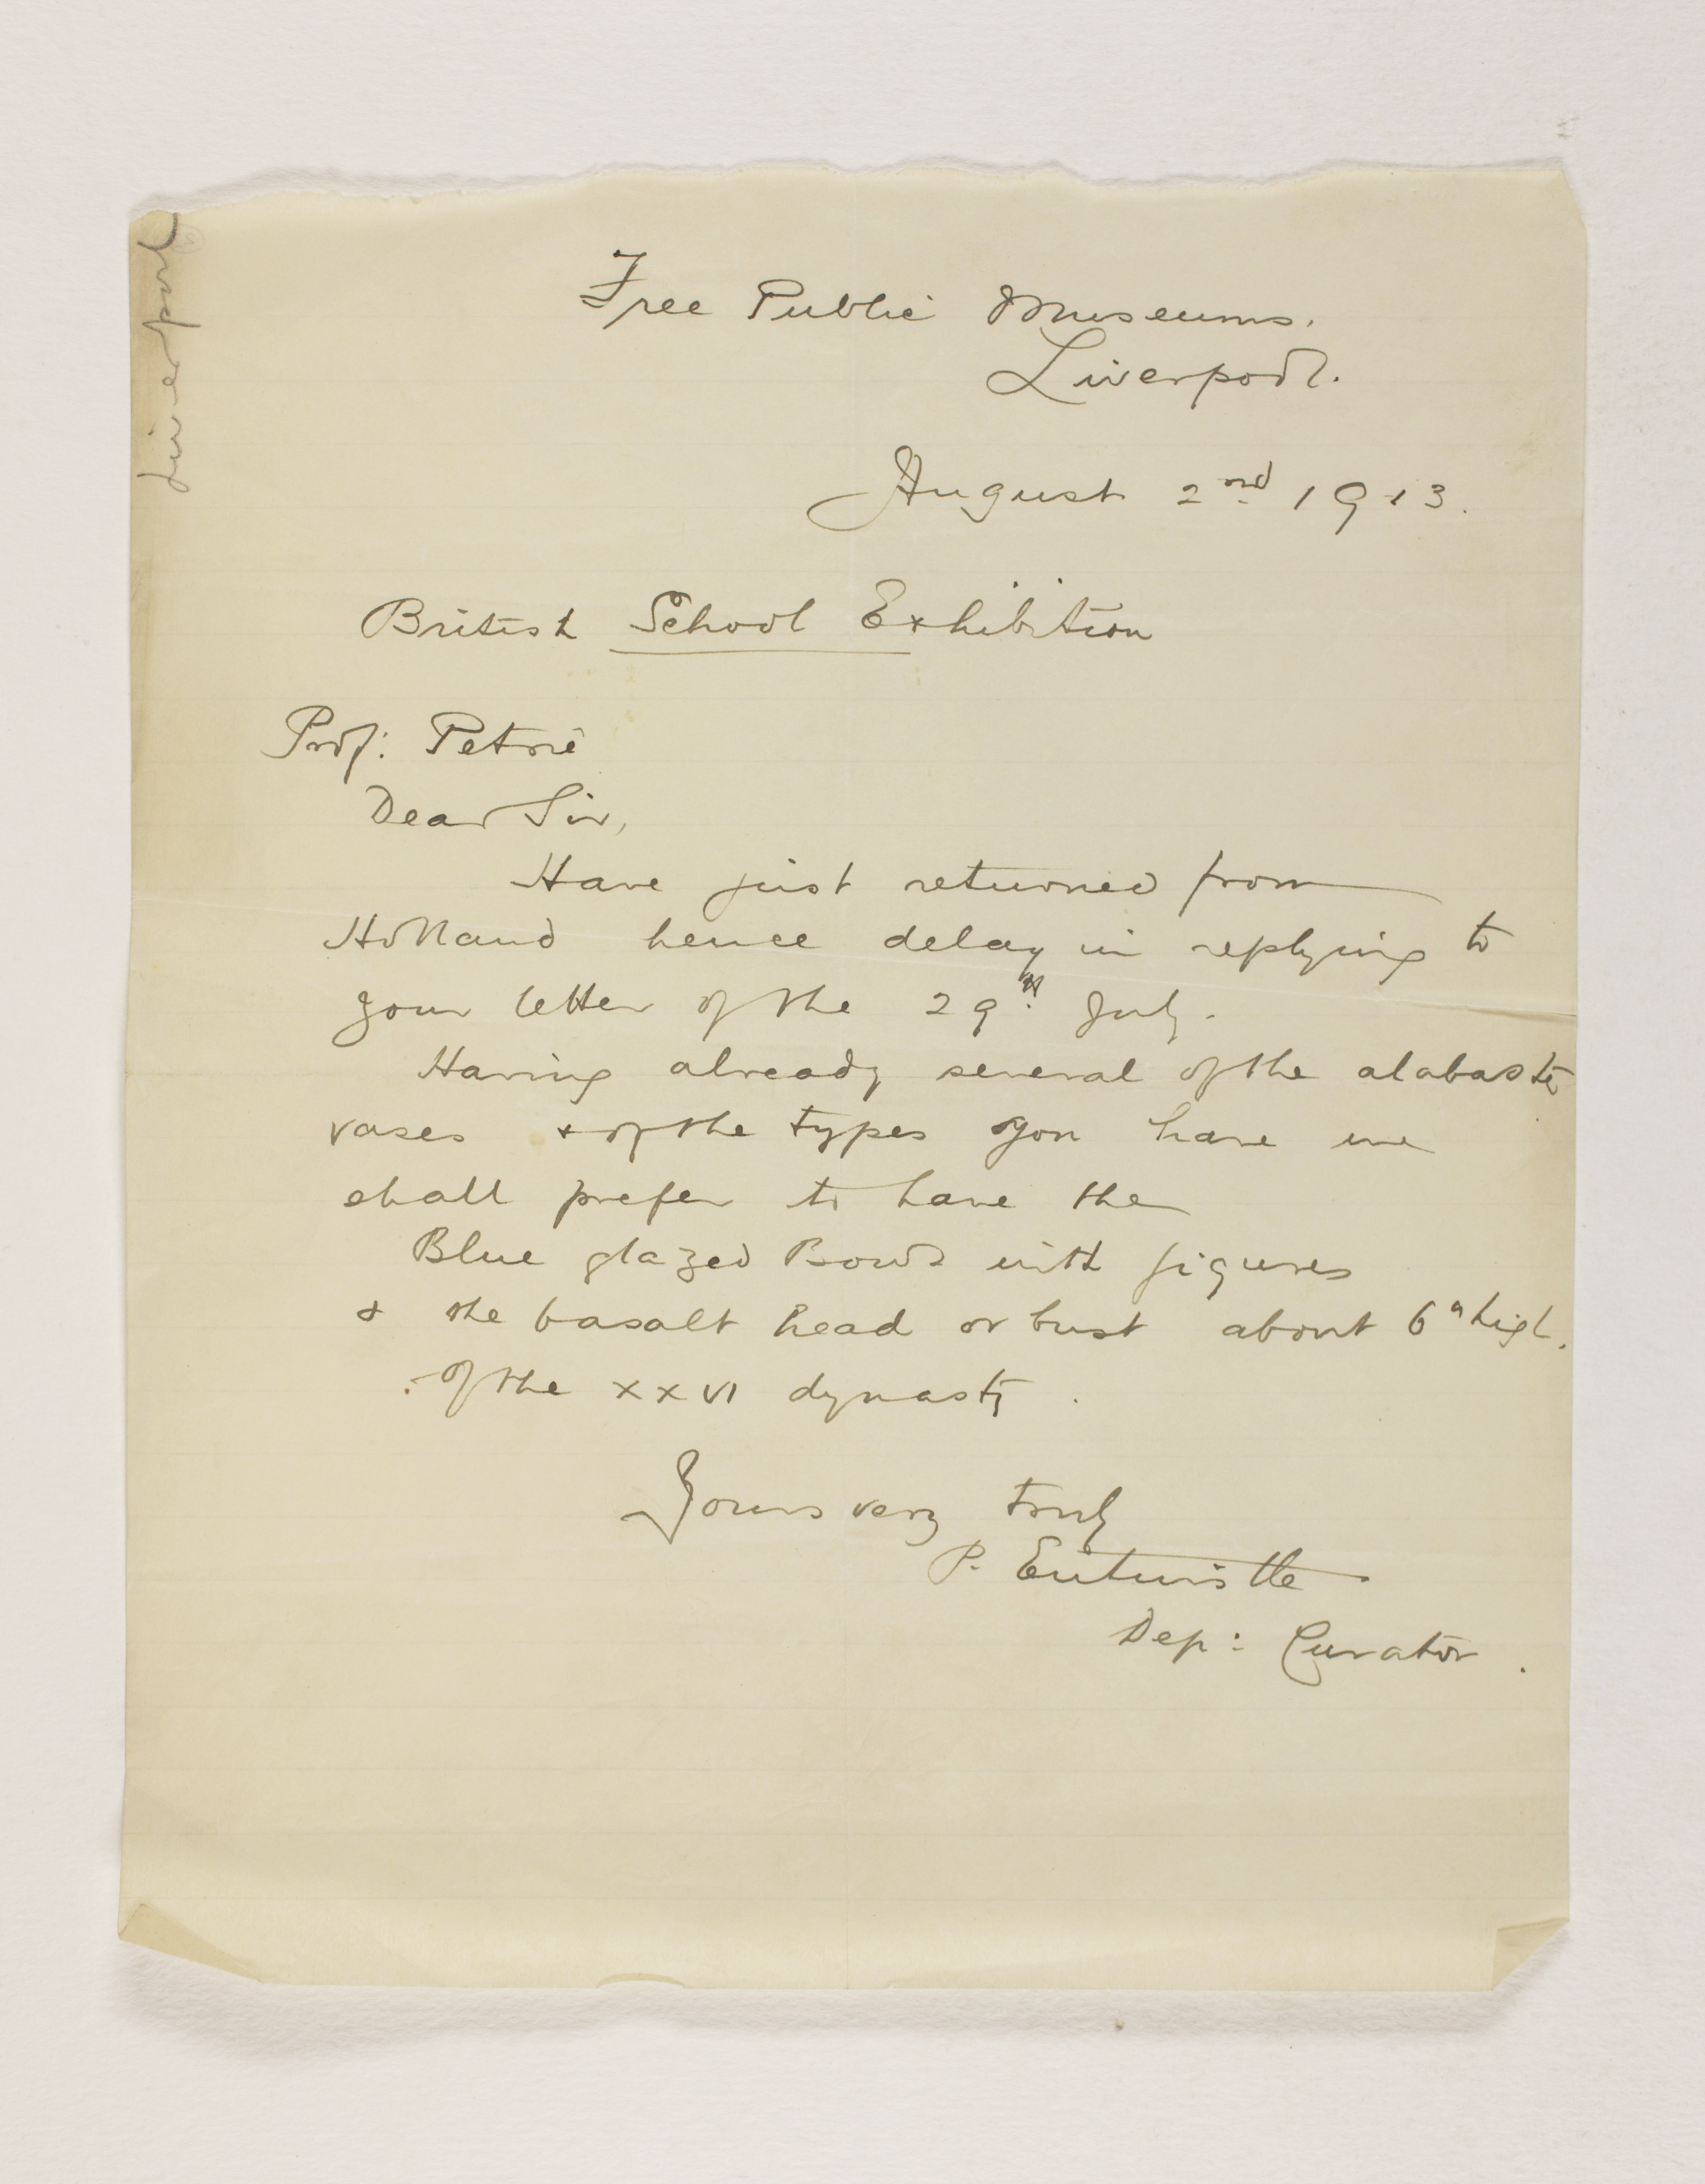 Liverpool
Free Public Museums.
Liverpool.
August 2nd 1913.
British School Exhibition
Prof: Petrie
Dear Sir,
Have just returned from
Holland hence delay in replying to
your letter of the 29th July.
Having already several of the alabaster
vases & of the types you have we
shall prefer to have the
Blue glazed Bowl with figures
& the basalt head or bust about 6" high.
of the XXVI dynasty.
Yours very truly
P. Entwistle
Dep: Curator.